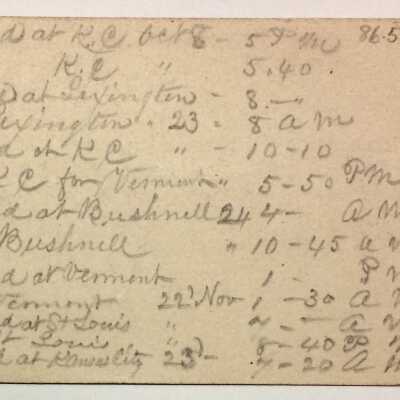 d at K.C. Oct 8 - 5 P M 86.5
K.C " 5.40
d at Lexington - 8. -
exington " 23 = 8 A M
d at K C " - 10-10
K C for Vermont " 5-50 P M
d at Bushnell 24 4 - A M
Bushnell " 10-45 a m
d at Vermont 1 - P
Vermont 22 Nov 1 -30 A
d at St Louis " 7 - A
t Louis " 8-40 P
d at Kansas City 23 - 7-20 A M